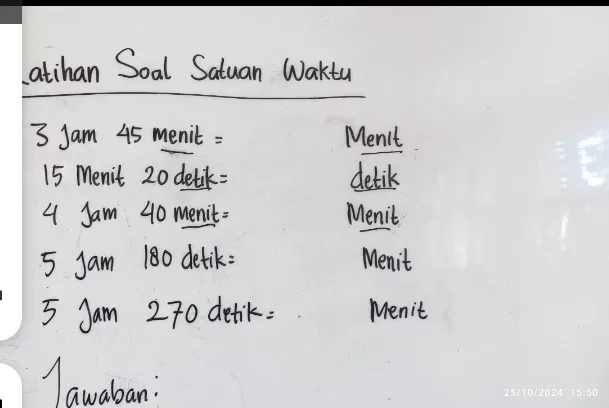 atihan Soal Satuan Waktu
3 Jam 45 menit = Menit
15 Menit 20 detik= detik
4 Jam 40 menit= Menit
5 Jam 180 detik= Menit
5 Jam 270 detik= Menit
Jawaban:
25/10/2024 15:50